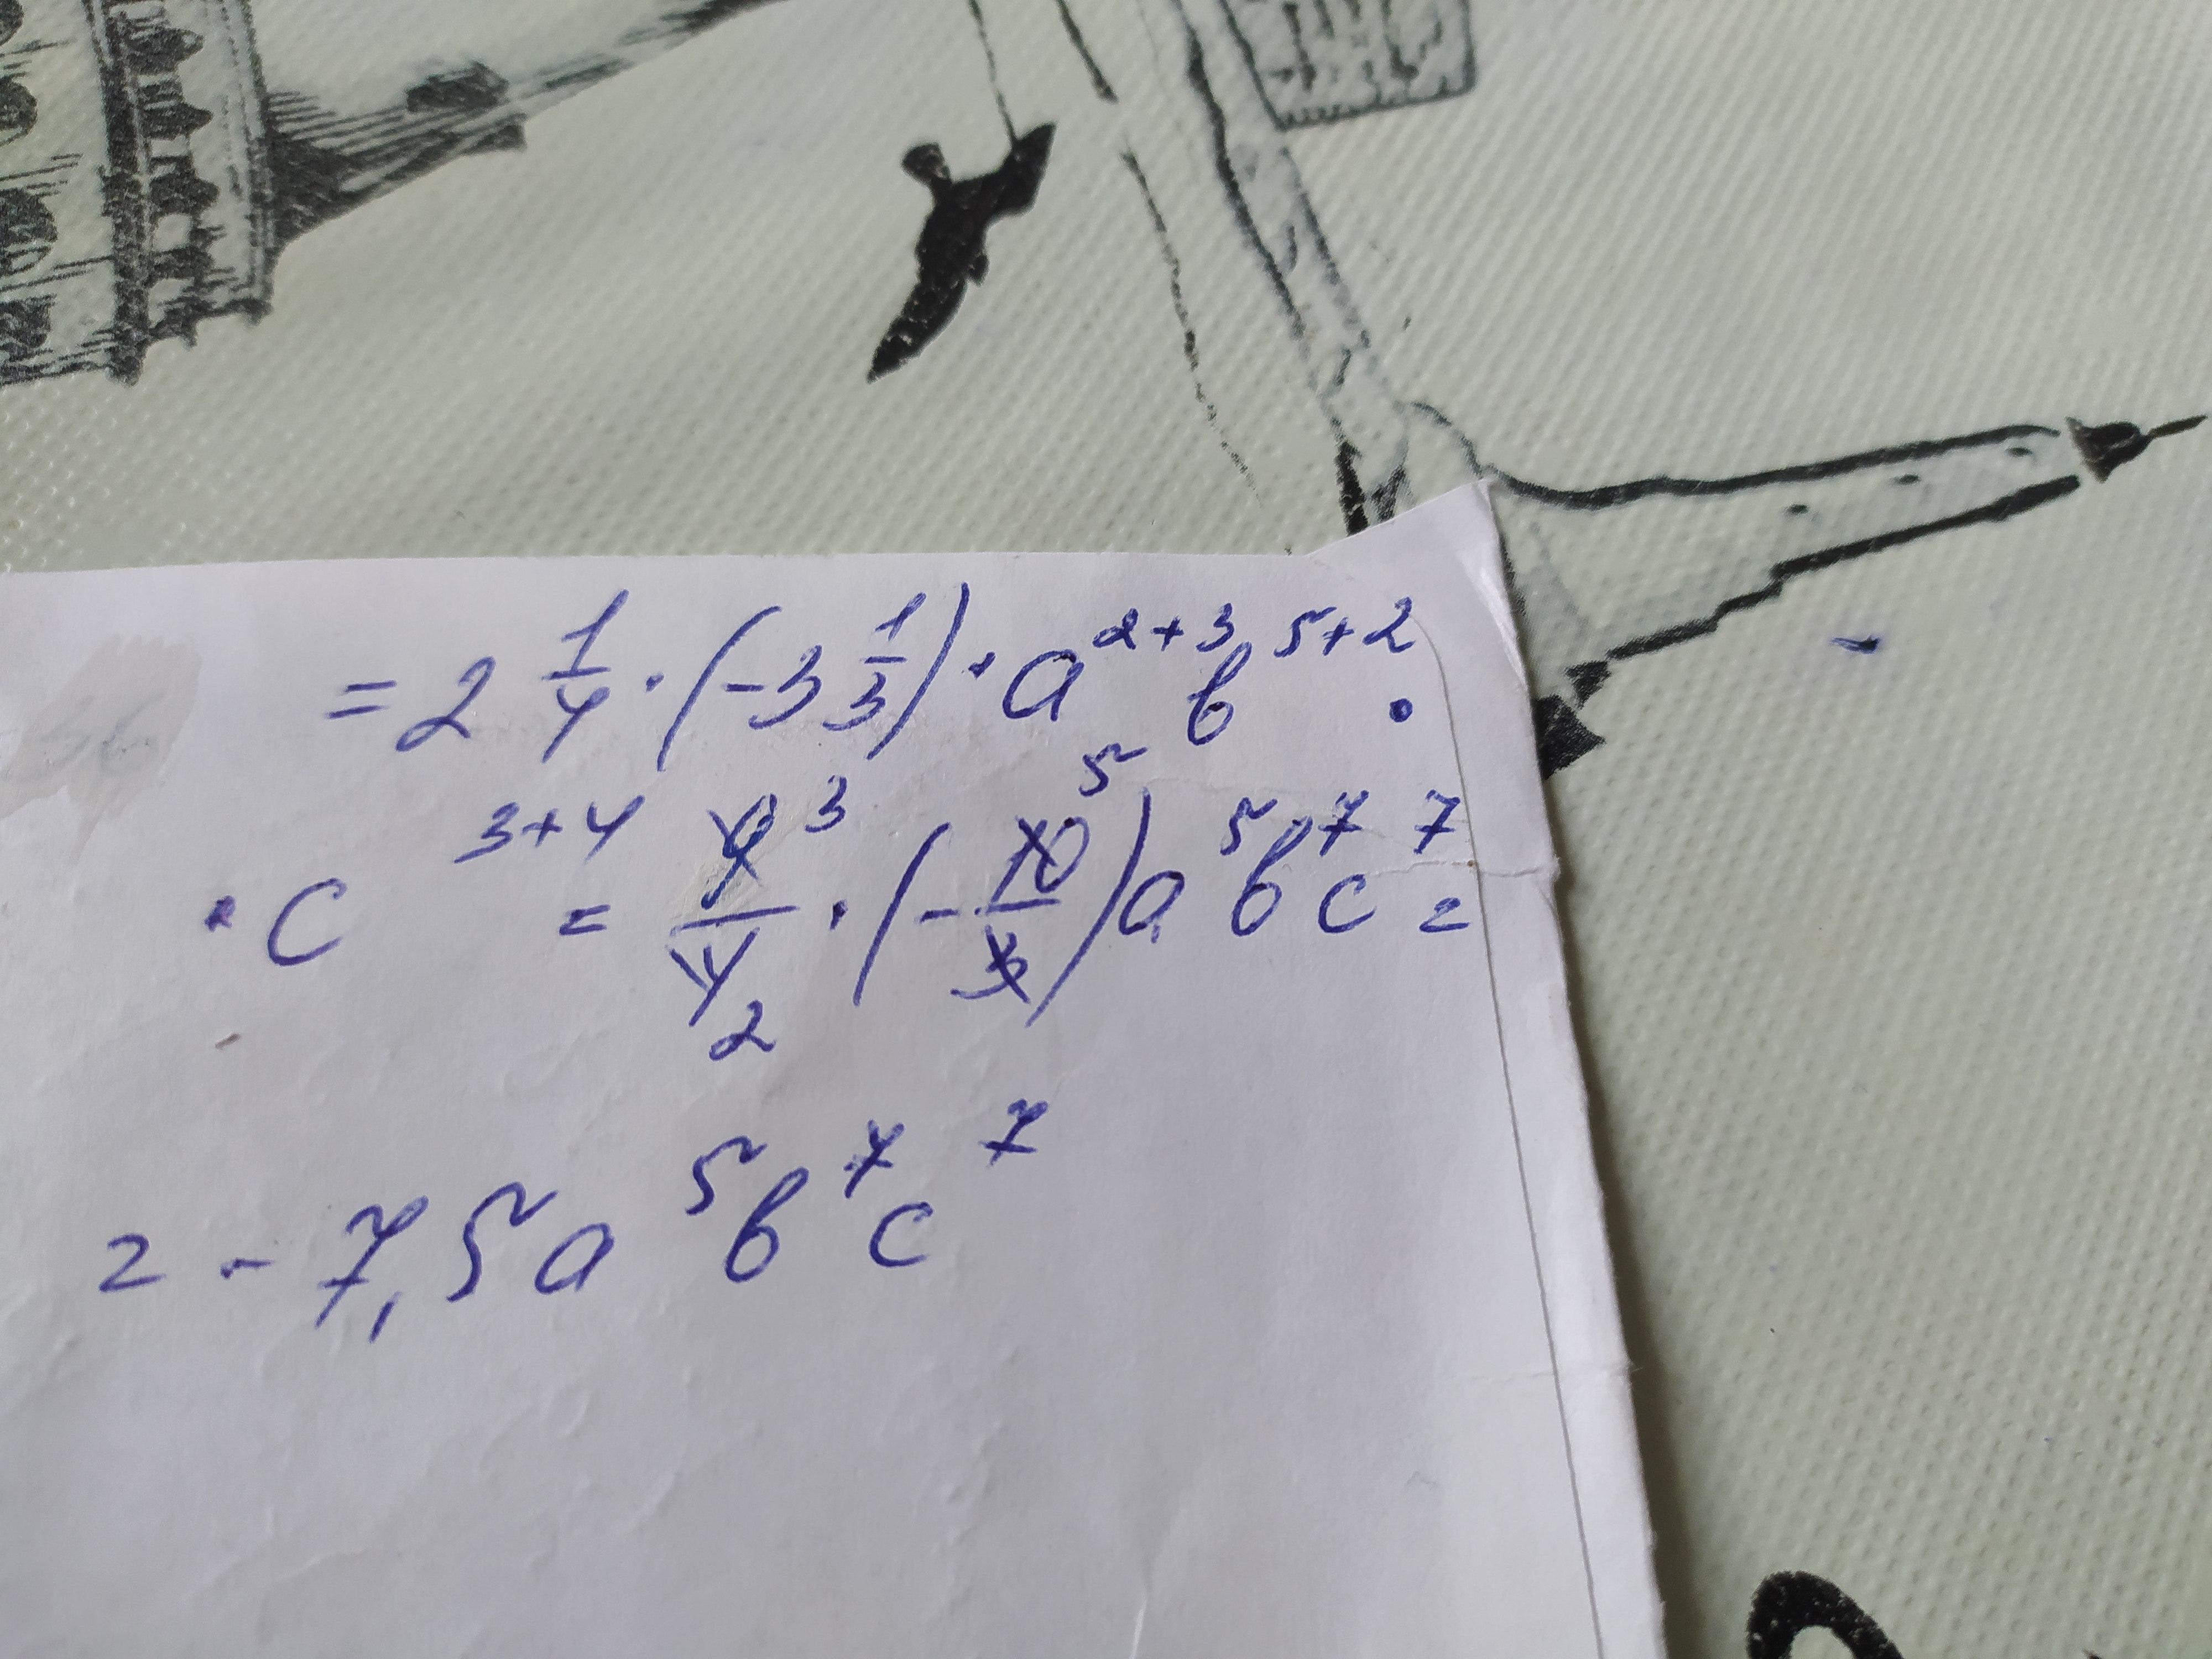 = 2 1/4 · (-3 1/3) · a^2+3 b^5+2 ·
· c^3+4 = 9 3/4 2 · (- 10 5/3) a^5 b^7 c^7 =
= - 7,5 a^5 b^7 c^7